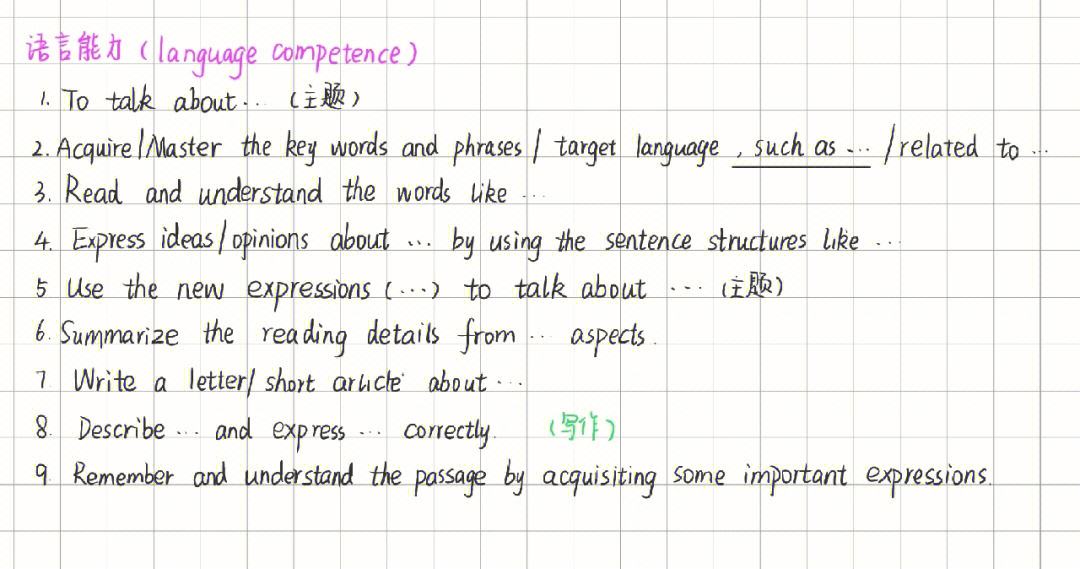 语言能力 (language competence)
1. To talk about... (主题)
2. Acquire/Master the key words and phrases / target language, such as ... /related to ...
3. Read and understand the words like ...
4. Express ideas/opinions about ... by using the sentence structures like ...
5 Use the new expressions (...) to talk about ... (主题)
6. Summarize the reading details from ... aspects.
7 Write a letter/ short article about ...
8. Describe ... and express ... correctly. (写作)
9 Remember and understand the passage by acquisiting some important expressions.